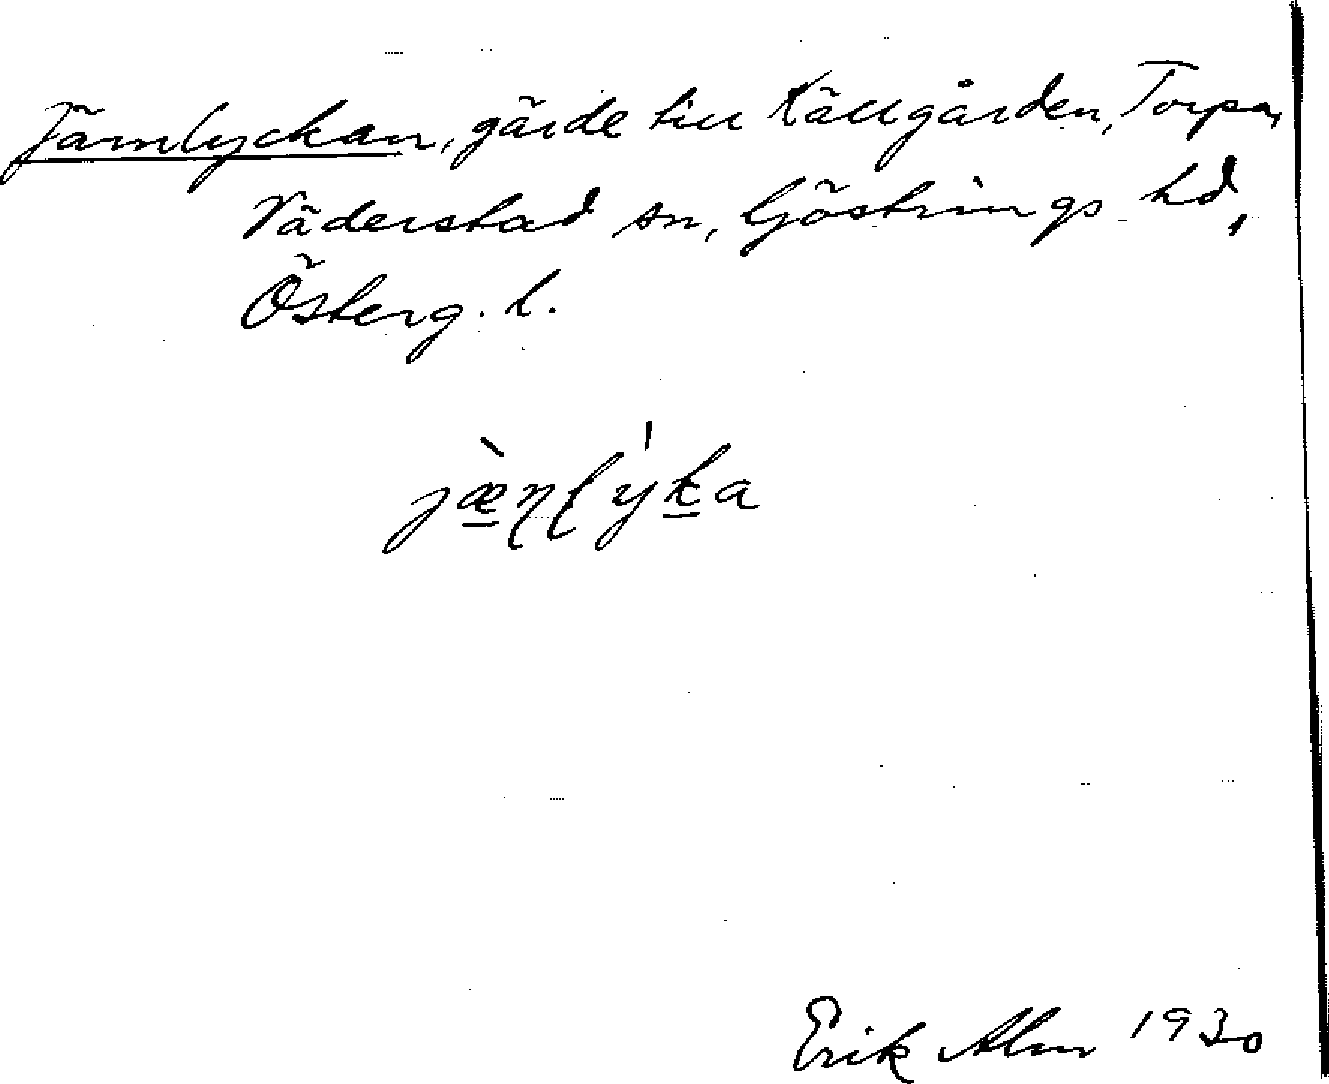 Järnlyckan, gärde till Källgården, Torpa,
Väderstad sn, Göstrings hd,
Österg. l.
Erik Alm 1930